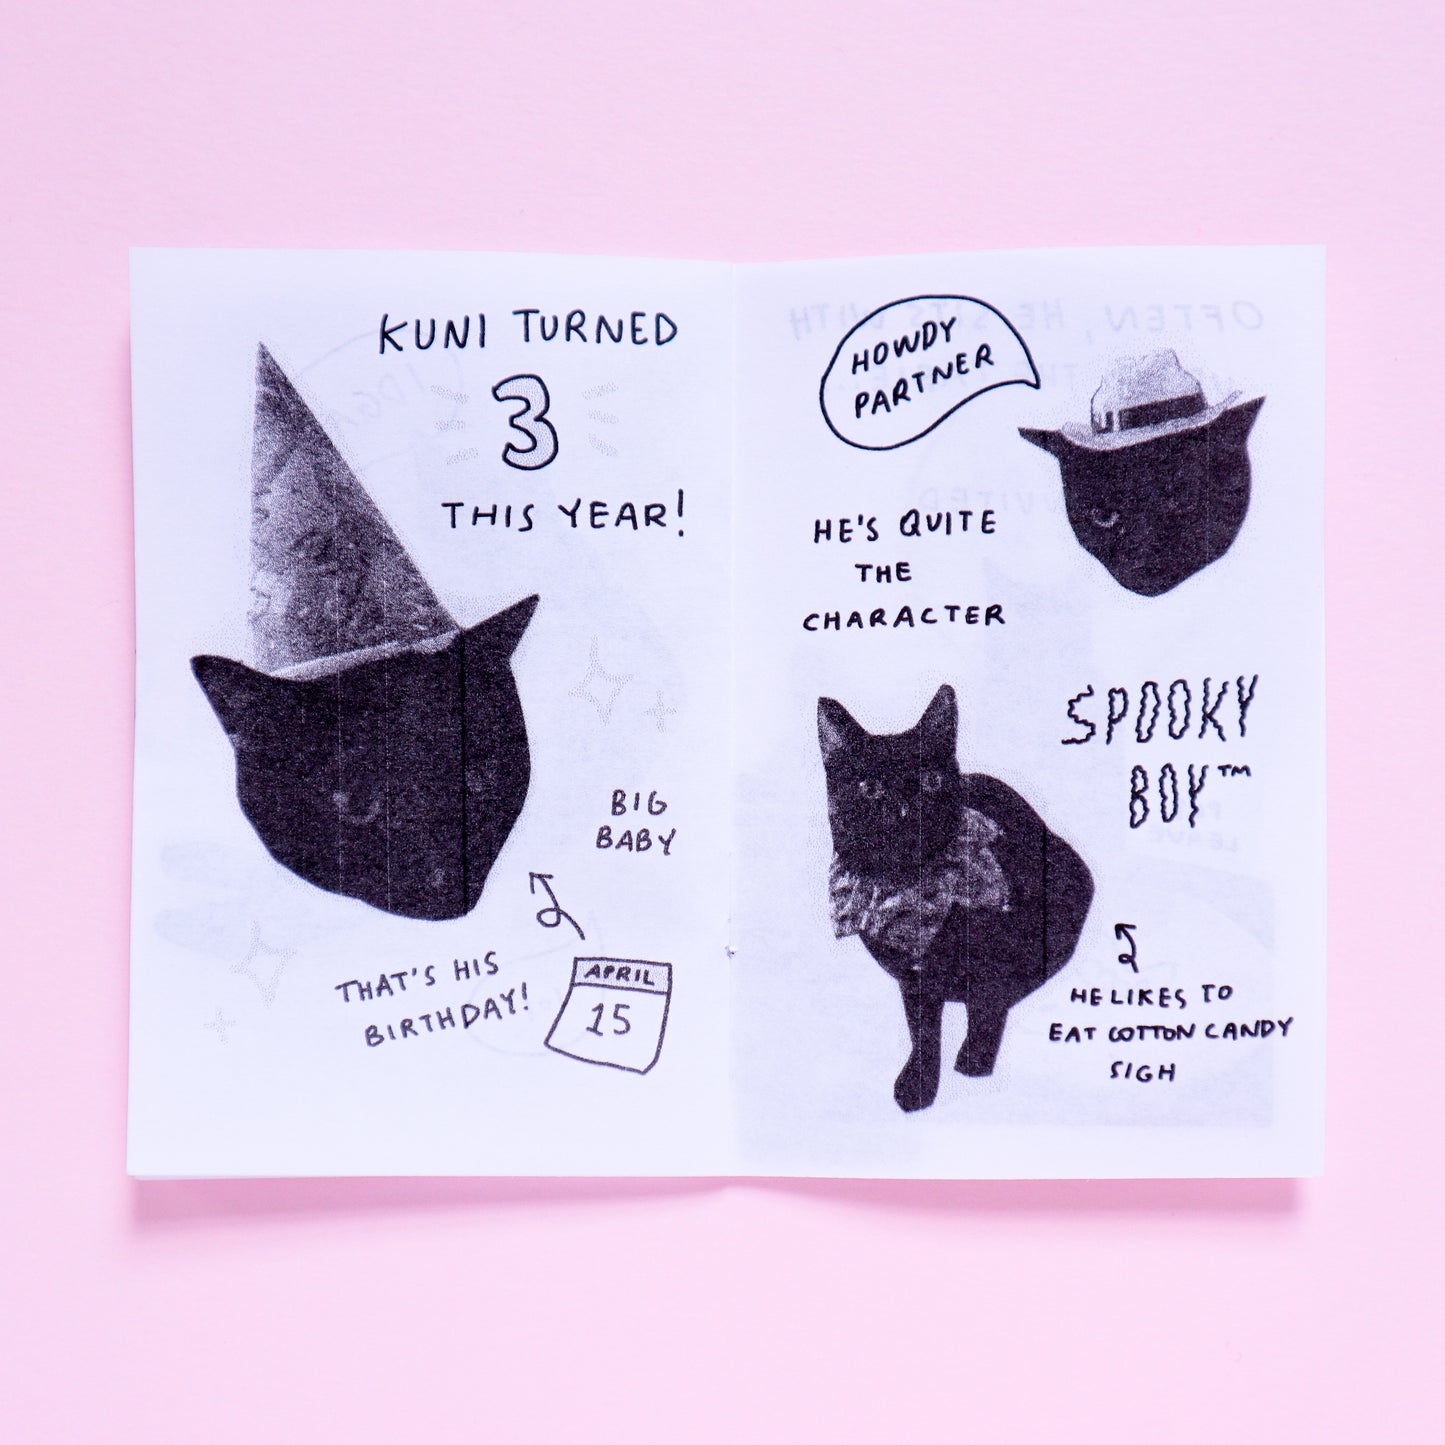 KUNI TURNED
3
THIS YEAR!
BIG
BABY
THAT'S HIS
BIRTHDAY!
APRIL
15
HOWDY
PARTNER
HE'S QUITE
THE
CHARACTER
SPOOKY
BOY™
HE LIKES TO
EAT COTTON CANDY
SIGH